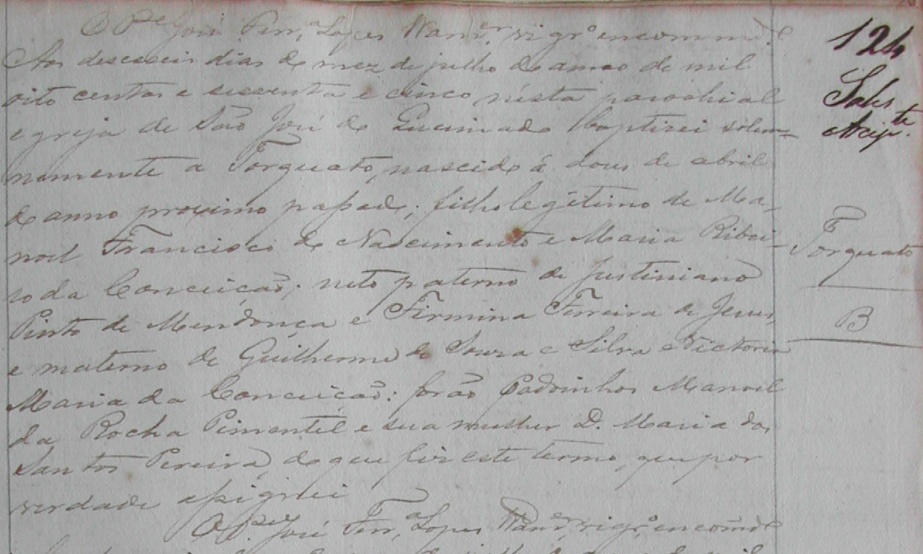 O Pe José Ferra Lopes Wander, vigro encommdo
Aos deseceis dias do mez de julho do anno de mil
oito centos e sessenta e cinco nésta parochial
egreja de São José do Queimado baptisei solem-
nemente a Torquato, nascido á dous de abril
do anno proximo passado; filho legitimo de Ma-
noel Francisco do Nascimento e Maria Ribei-
ro da Conceicão; neto paterno de Justiniano
Pinto de Mendonça e Firmina Ferreira de Jesus,
e materno de Guilherme de Souza e Silva e Victoria
Maria da Conceicão: forão Padrinhos Manoel
da Rocha Pimentel e sua mulher D. Maria dos
Santos Pereira, do que fiz este termo, que por
verdade assignei
O Pe José Ferra Lopes Wander, vigro encomdo
124
Torquato
B